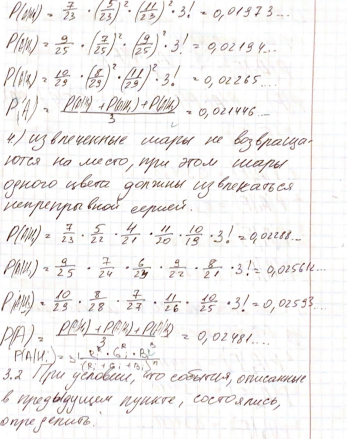 P(A|H₁) = 7/23 · (5/23)² · (11/23)² · 3! = 0,01973...
P(A|H₂) = 9/25 · (7/25)² · (9/25)² · 3! = 0,02194...
P(A|H₃) = 10/29 · (8/29)² · (11/29)² · 3! = 0,02265...
P(A) = (P(A|H₁) + P(A|H₂) + P(A|H₃))/3 = 0,021446...
4) извлеченные шары не возвраща-
ются на место, при этом шары
одного цвета должны извлекаться
непрерывной серией.
P(A|H₁) = 7/23 · 5/22 · 4/21 · 11/20 · 10/19 · 3! = 0,02288...
P(A|H₂) = 9/25 · 7/24 · 6/23 · 9/22 · 8/21 · 3! = 0,025612...
P(A|H₃) = 10/29 · 8/28 · 7/27 · 11/26 · 10/25 · 3! = 0,02593...
P(A) = (P(A|H₁) + P(A|H₂) + P(A|H₃))/3 = 0,02481...
3.2 При условии, что события, описанные
в предыдущем пункте, состоялись,
определить: